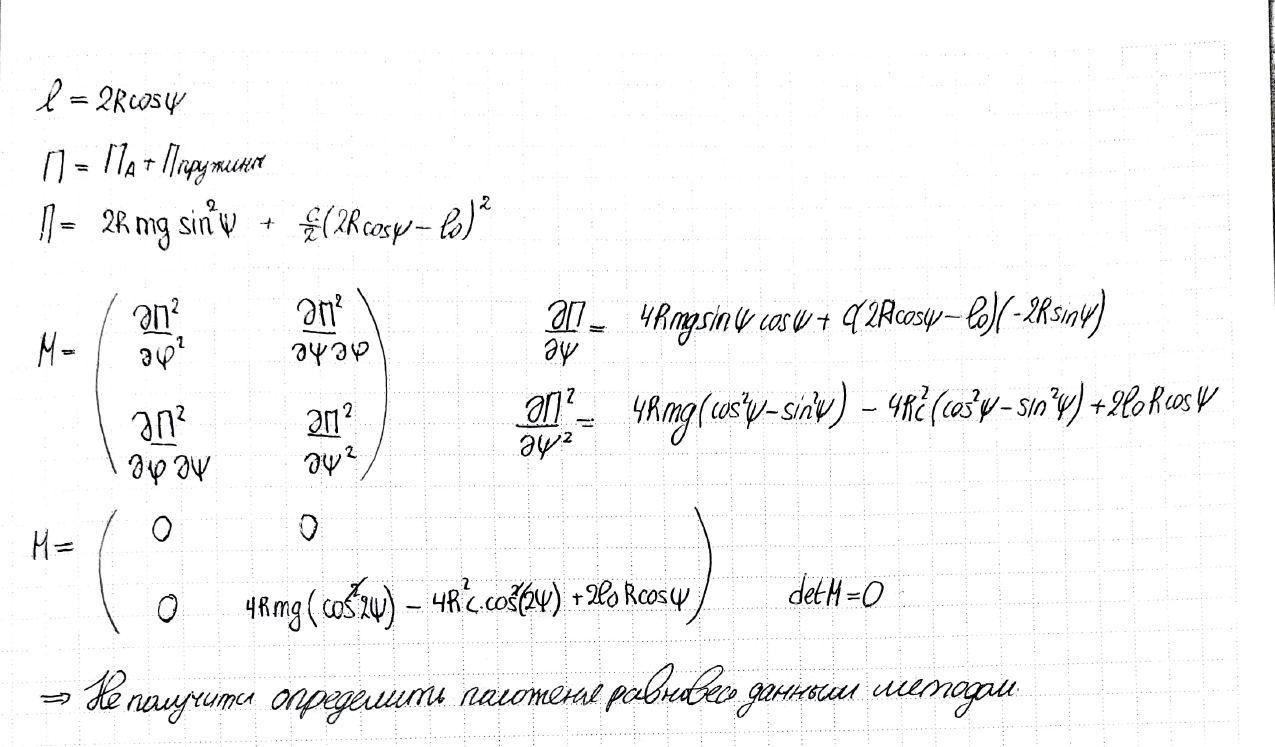 l = 2Rcosψ
П = П_A + П_пружины
П = 2Rmg sin²ψ + c/2 (2Rcosψ − l₀)²
M = ( ∂П²/∂φ² ∂П²/∂ψ∂φ ; ∂П²/∂φ∂ψ ∂П²/∂ψ² )
∂П/∂ψ = 4Rmg sinψ cosψ + c(2Rcosψ − l₀)(−2Rsinψ)
∂П²/∂ψ² = 4Rmg(cos²ψ − sin²ψ) − 4R²c(cos²ψ − sin²ψ) + 2l₀Rcosψ
M = ( 0 0 ; 0 4Rmg(cos2ψ) − 4R²c·cos(2ψ) + 2l₀Rcosψ ) detM = 0
⇒ Не получити определити положение равновесе данным методом